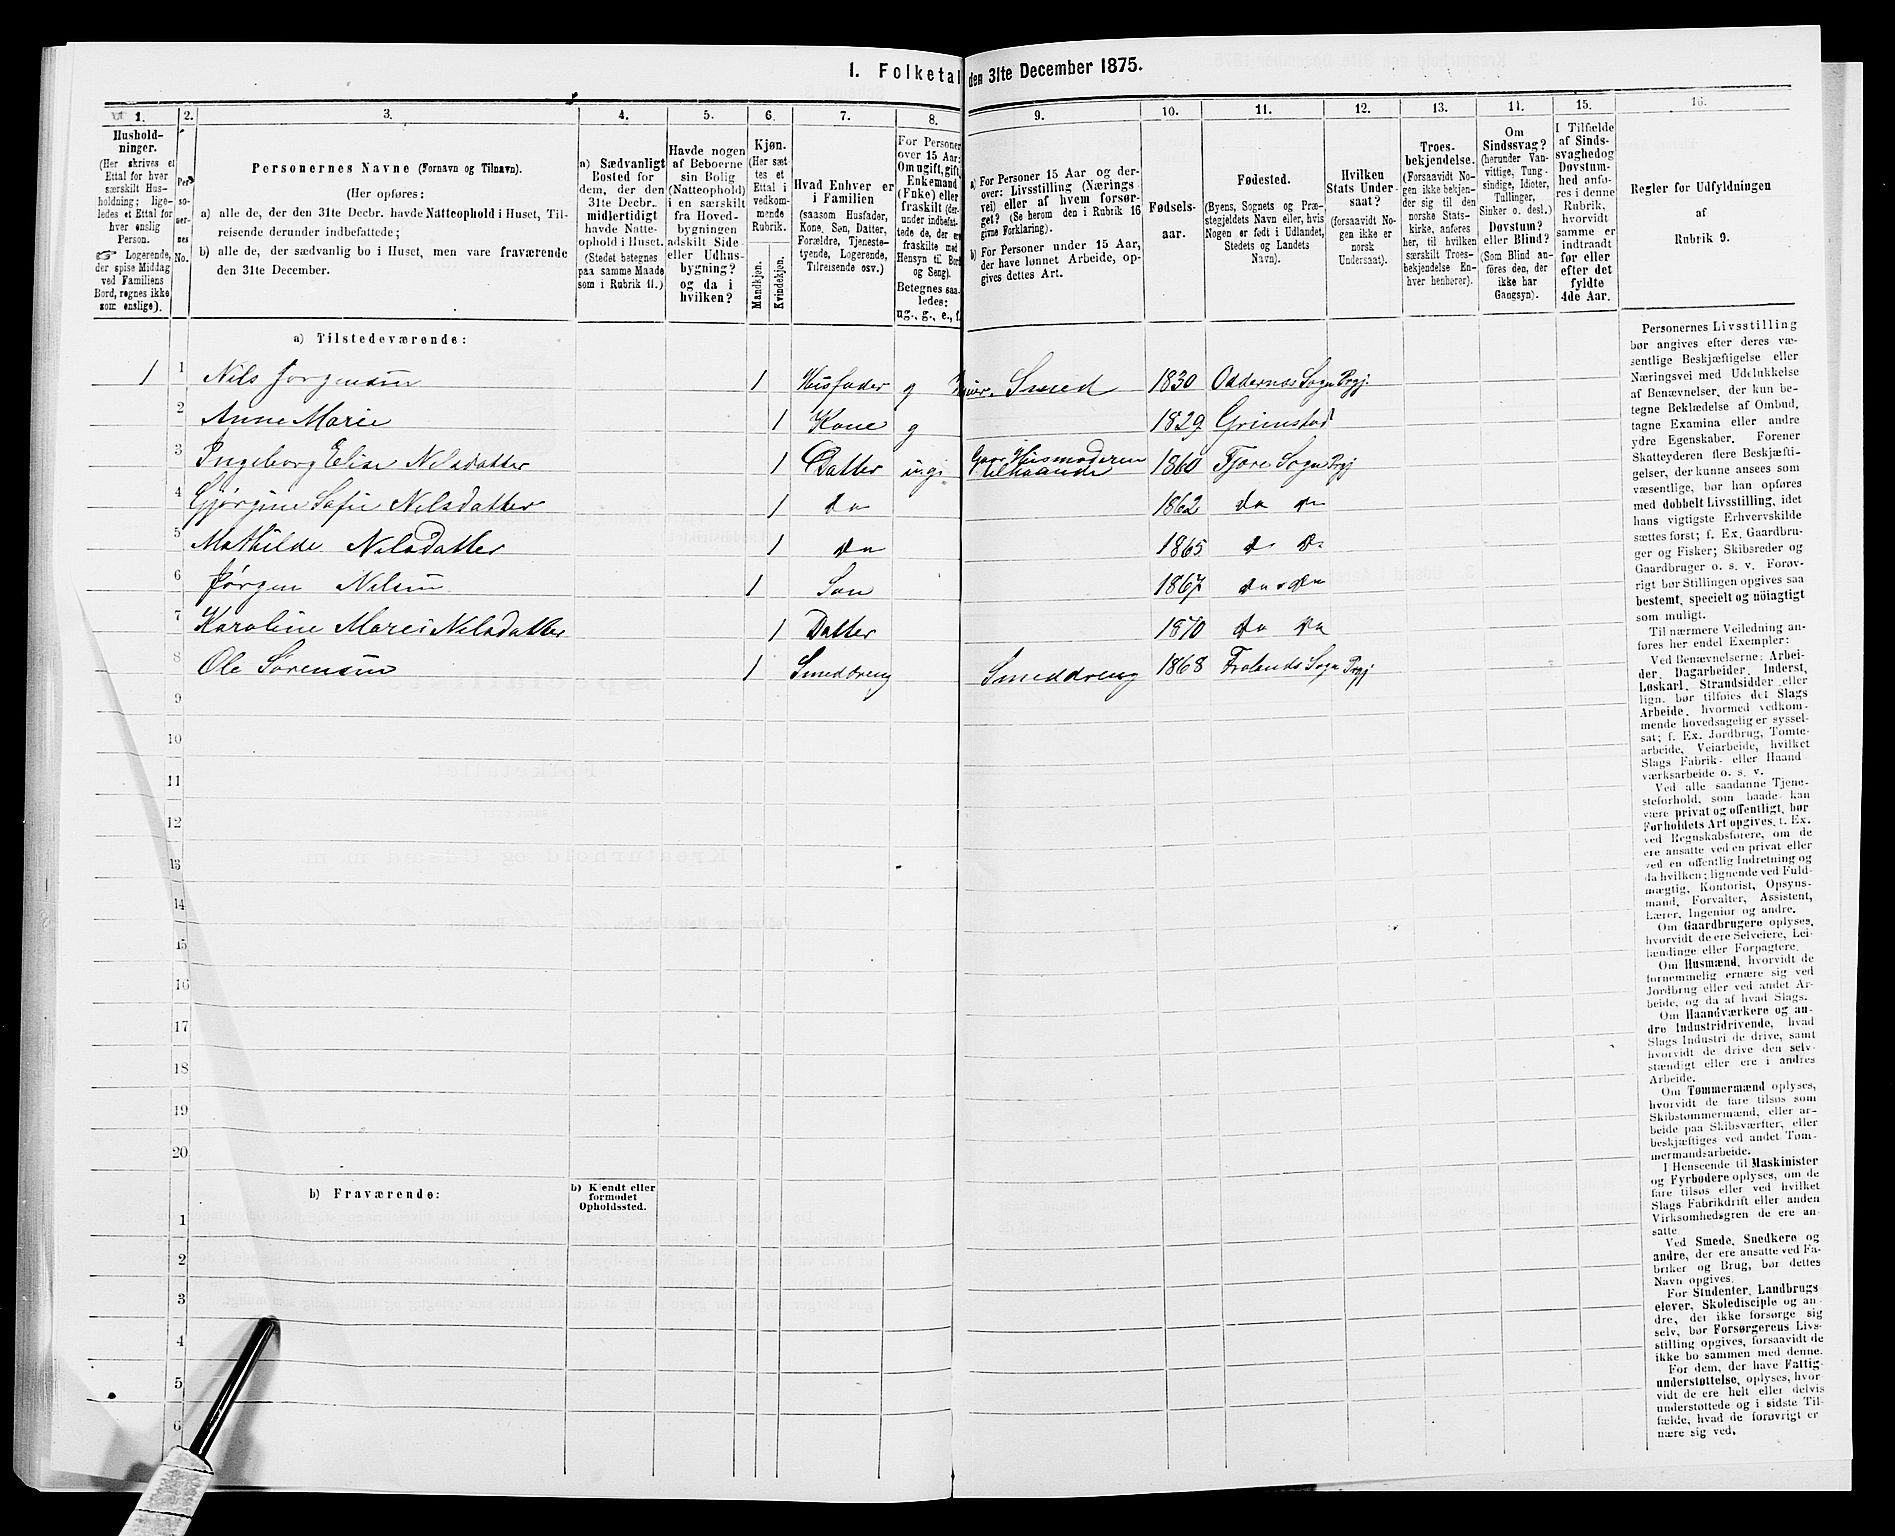 1. Folketal den 31te December 1875.
1.
Hushold-
ninger.
(Her skrives et
Ettal for hver
særskilt Hus-
holdning; lige-
ledes et Ettal for
hver enslig
Person.
☞ Logerende,
der spise Middag
ved Familiens
Bord, regnes ikke
som enslige).
2.
Per-
so-
ner-
nes
No.
3.
Personernes Navne (Fornavn og Tilnavn).
(Her opføres:
a) alle de, der den 31te Decbr. havde Natteophold i Huset, Til-
reisende derunder indbefattede;
b) alle de, der sædvanlig bo i Huset, men vare fraværende
den 31te December.
4.
a) Sædvanligt
Bosted for
dem, der den
31te Decbr.
midlertidigt
havde Natte-
ophold i Huset.
(Stedet betegnes
paa samme Maade
som i Rubrik 11.)
5.
Havde nogen
af Beboerne
sin Bolig
(Natteophold)
i en særskilt
fra Hoved-
bygningen
adskilt Side-
eller Udhus-
bygning?
og da i
hvilken?
6.
Kjøn.
(Her sæt-
tes et
Ettal i
vedkom-
mende
Rubrik.
Mandkjøn.
Kvindekjøn.
7.
Hvad Enhver er
i Familien
(saasom Husfader,
Kone, Søn, Datter,
Forældre, Tjeneste-
tyende, Logerende,
Tilreisende osv.)
8.
For Personer
over 15 Aar:
Om ugift, gift,
Enkemand
(Enke) eller
fraskilt (der-
under indbefat-
tede de, der ere
fraskilte med
Hensyn til Bord
og Seng).
Betegnes saa-
ledes:
ug., g., e., f.
9.
a) For Personer 15 Aar og der-
over: Livsstilling (Nærings-
vei) eller af hvem forsør-
get? (Se herom den i Rubrik 16
givne Forklaring).
b) For Personer under 15 Aar,
der have lønnet Arbeide, op-
gives dettes Art.
10.
Fødsels-
aar.
11.
Fødested.
(Byens, Sognets og Præ-
stegjeldets Navn eller, hvis
Nogen er født i Udlandet,
Stedets og Landets
Navn).
12.
Hvilken
Stats Under-
saat?
(forsaavidt No-
gen ikke er
norsk
Undersaat).
13.
Troes-
bekjendelse.
(Forsaavidt No-
gen ikke bekjen-
der sig til den
norske Stats-
kirke, anføres
her, til hvilken
særskilt Troes-
bekjendelse En-
hver henhører).
14.
Om
Sindssvag?
(herunder Van-
vittige, Tung-
sindige, Idioter,
Tullinger,
Sinker o. desl.)
Døvstum?
eller Blind?
(Som Blind an-
føres den, der
ikke har
Gangsyn).
15.
I Tilfælde
af Sinds-
svaghed og
Døvstum-
hed anfø-
res i denne
Rubrik,
hvorvidt
samme er
indtraadt
før eller
efter det
fyldte
4de Aar.
16.
Regler for Udfyldningen
af
Rubrik 9.
a) Tilstedeværende:
1 1 Nils Jorgensen 1 Husfader g Smed 1830 Oddernæs Sogn Prgj.
2 Anne Marie 1 Kone g 1829 Grimstad
3 Ingeborg Elise Nilsdatter 1 Datter ug Gaar Husmoderen tilhaande 1860 Fjære Sogn Prgj
4 Gjørgine Sofie Nilsdatter 1 do 1862 do do
5 Mathilde Nilsdatter 1 do 1865 do do
6 Jørgen Nilsen 1 Søn 1867 do do
7 Karoline Marei Nilsdatter 1 Datter 1870 do do
8 Ole Sørensen 1 Smeddreng Smeddreng 1868 Frolands Sogn Prgj
9
10
11
12
13
14
15
16
17
18
19
20
b) Fraværende:
b) Kjendt eller
formodet
Opholdssted.
1
2
3
4
5
6
Personernes Livsstilling
bør angives efter deres væ-
sentlige Beskjæftigelse eller
Næringsvei med Udelukkelse
af Benævnelser, der kun be-
tegne Beklædelse af Ombud,
tagne Examina eller andre
ydre Egenskaber. Forener
Skatteyderen flere Beskjæfti-
gelser, der kunne ansees som
væsentlige, bør han opføres
med dobbelt Livsstilling, idet
hans vigtigste Erhvervskilde
sættes først; f. Ex. Gaardbru-
ger og Fisker; Skibsreder og
Gaardbruger o. s. v. Forøv-
rigt bør Stillingen opgives saa
bestemt, specielt og nöiagtigt
som muligt.
Til nærmere Veiledning an-
føres her endel Exempler:
Ved Benævnelserne: Arbei-
der, Dagarbeider, Inderst,
Løskarl, Strandsidder eller
lign. bør tilføies det Slags
Arbeide, hvormed vedkom-
mende hovedsagelig er syssel-
sat; f. Ex. Jordbrug, Tomte-
arbeide, Veiarbeide, hvilket
Slags Fabrik- eller Haand-
værksarbeide o. s. v.
Ved alle saadanne Tjene-
steforhold, som baade kan
være privat og offentligt, bør
Forholdets Art opgives, f. Ex.
ved Regnskabsførere, om de
ere ansatte ved en privat eller
ved en offentlig Indretning og
da hvilken; lignende ved Fuld-
mægtig, Kontorist, Opsyns-
mand, Forvalter, Assistent,
Lærer, Ingeniør og andre.
Om Gaardbrugere oplyses,
hvorvidt de ere Selveiere, Lei-
lændinge eller Forpagtere.
Om Husmænd, hvorvidt de
fornemmelig ernære sig ved
Jordbrug eller ved andet Ar-
beide, og da af hvad Slags.
Om Haandværkere og an-
dre Industridrivende, hvad
Slags Industri de drive, samt
hvorvidt de drive den selv-
stændigt eller ere i andres
Arbeide.
Om Tømmermænd oplyses,
hvorvidt de fare tilsøs som
Skibstømmermænd, eller ar-
beide paa Skibsværfter, eller
beskjæftiges ved andet Tøm-
mermandsarbeide.
I Henseende til Maskinister
og Fyrbødere oplyses, om de
fare tilsøs eller ved hvilket
Slags Fabrikdrift eller anden
Virksomhedsgren de ere an-
satte.
Ved Smede, Snedkere og
andre, der ere ansatte ved Fa-
briker og Brug, bør dettes
Navn opgives.
For Studenter, Landbrugs-
elever, Skoledisciple og an-
dre, der ikke forsørge sig
selv, bør Forsørgerens Livs-
stilling opgives, forsaavidt de
ikke bo sammen med denne.
For dem, der have Fattig-
understøttelse, oplyses, hvor-
vidt de ere helt eller delvis
understøttede og i sidste Til-
fælde, hvad de forøvrigt er-
nære sig ved.